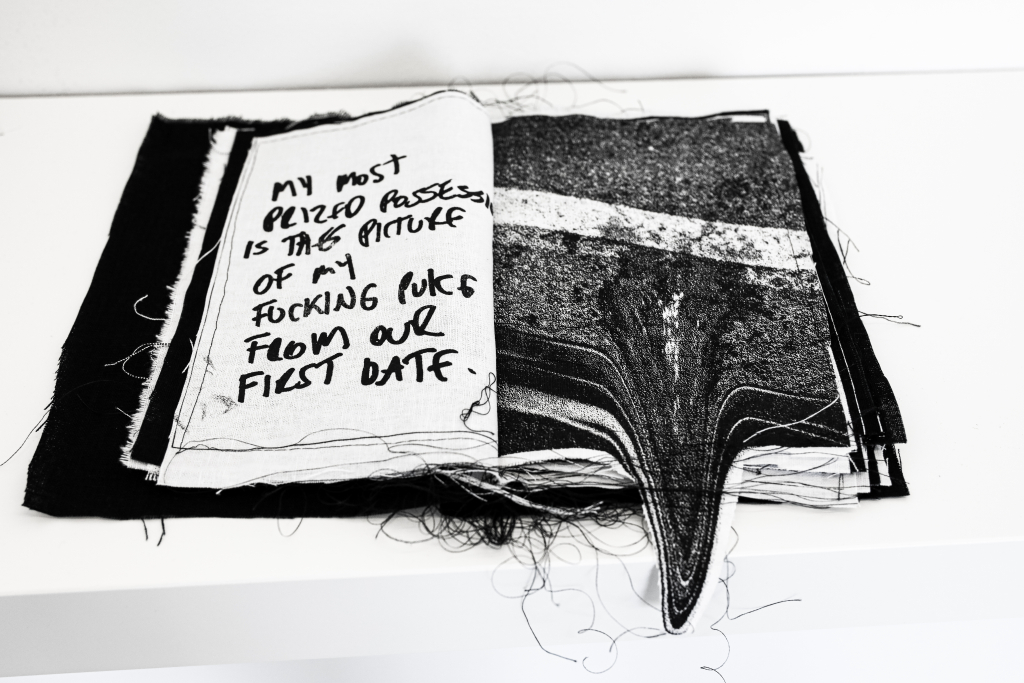 MY MOST
PRIZED POSSESSI
IS THIS PICTURE
OF MY
FUCKING PUKE
FROM OUR
FIRST DATE.